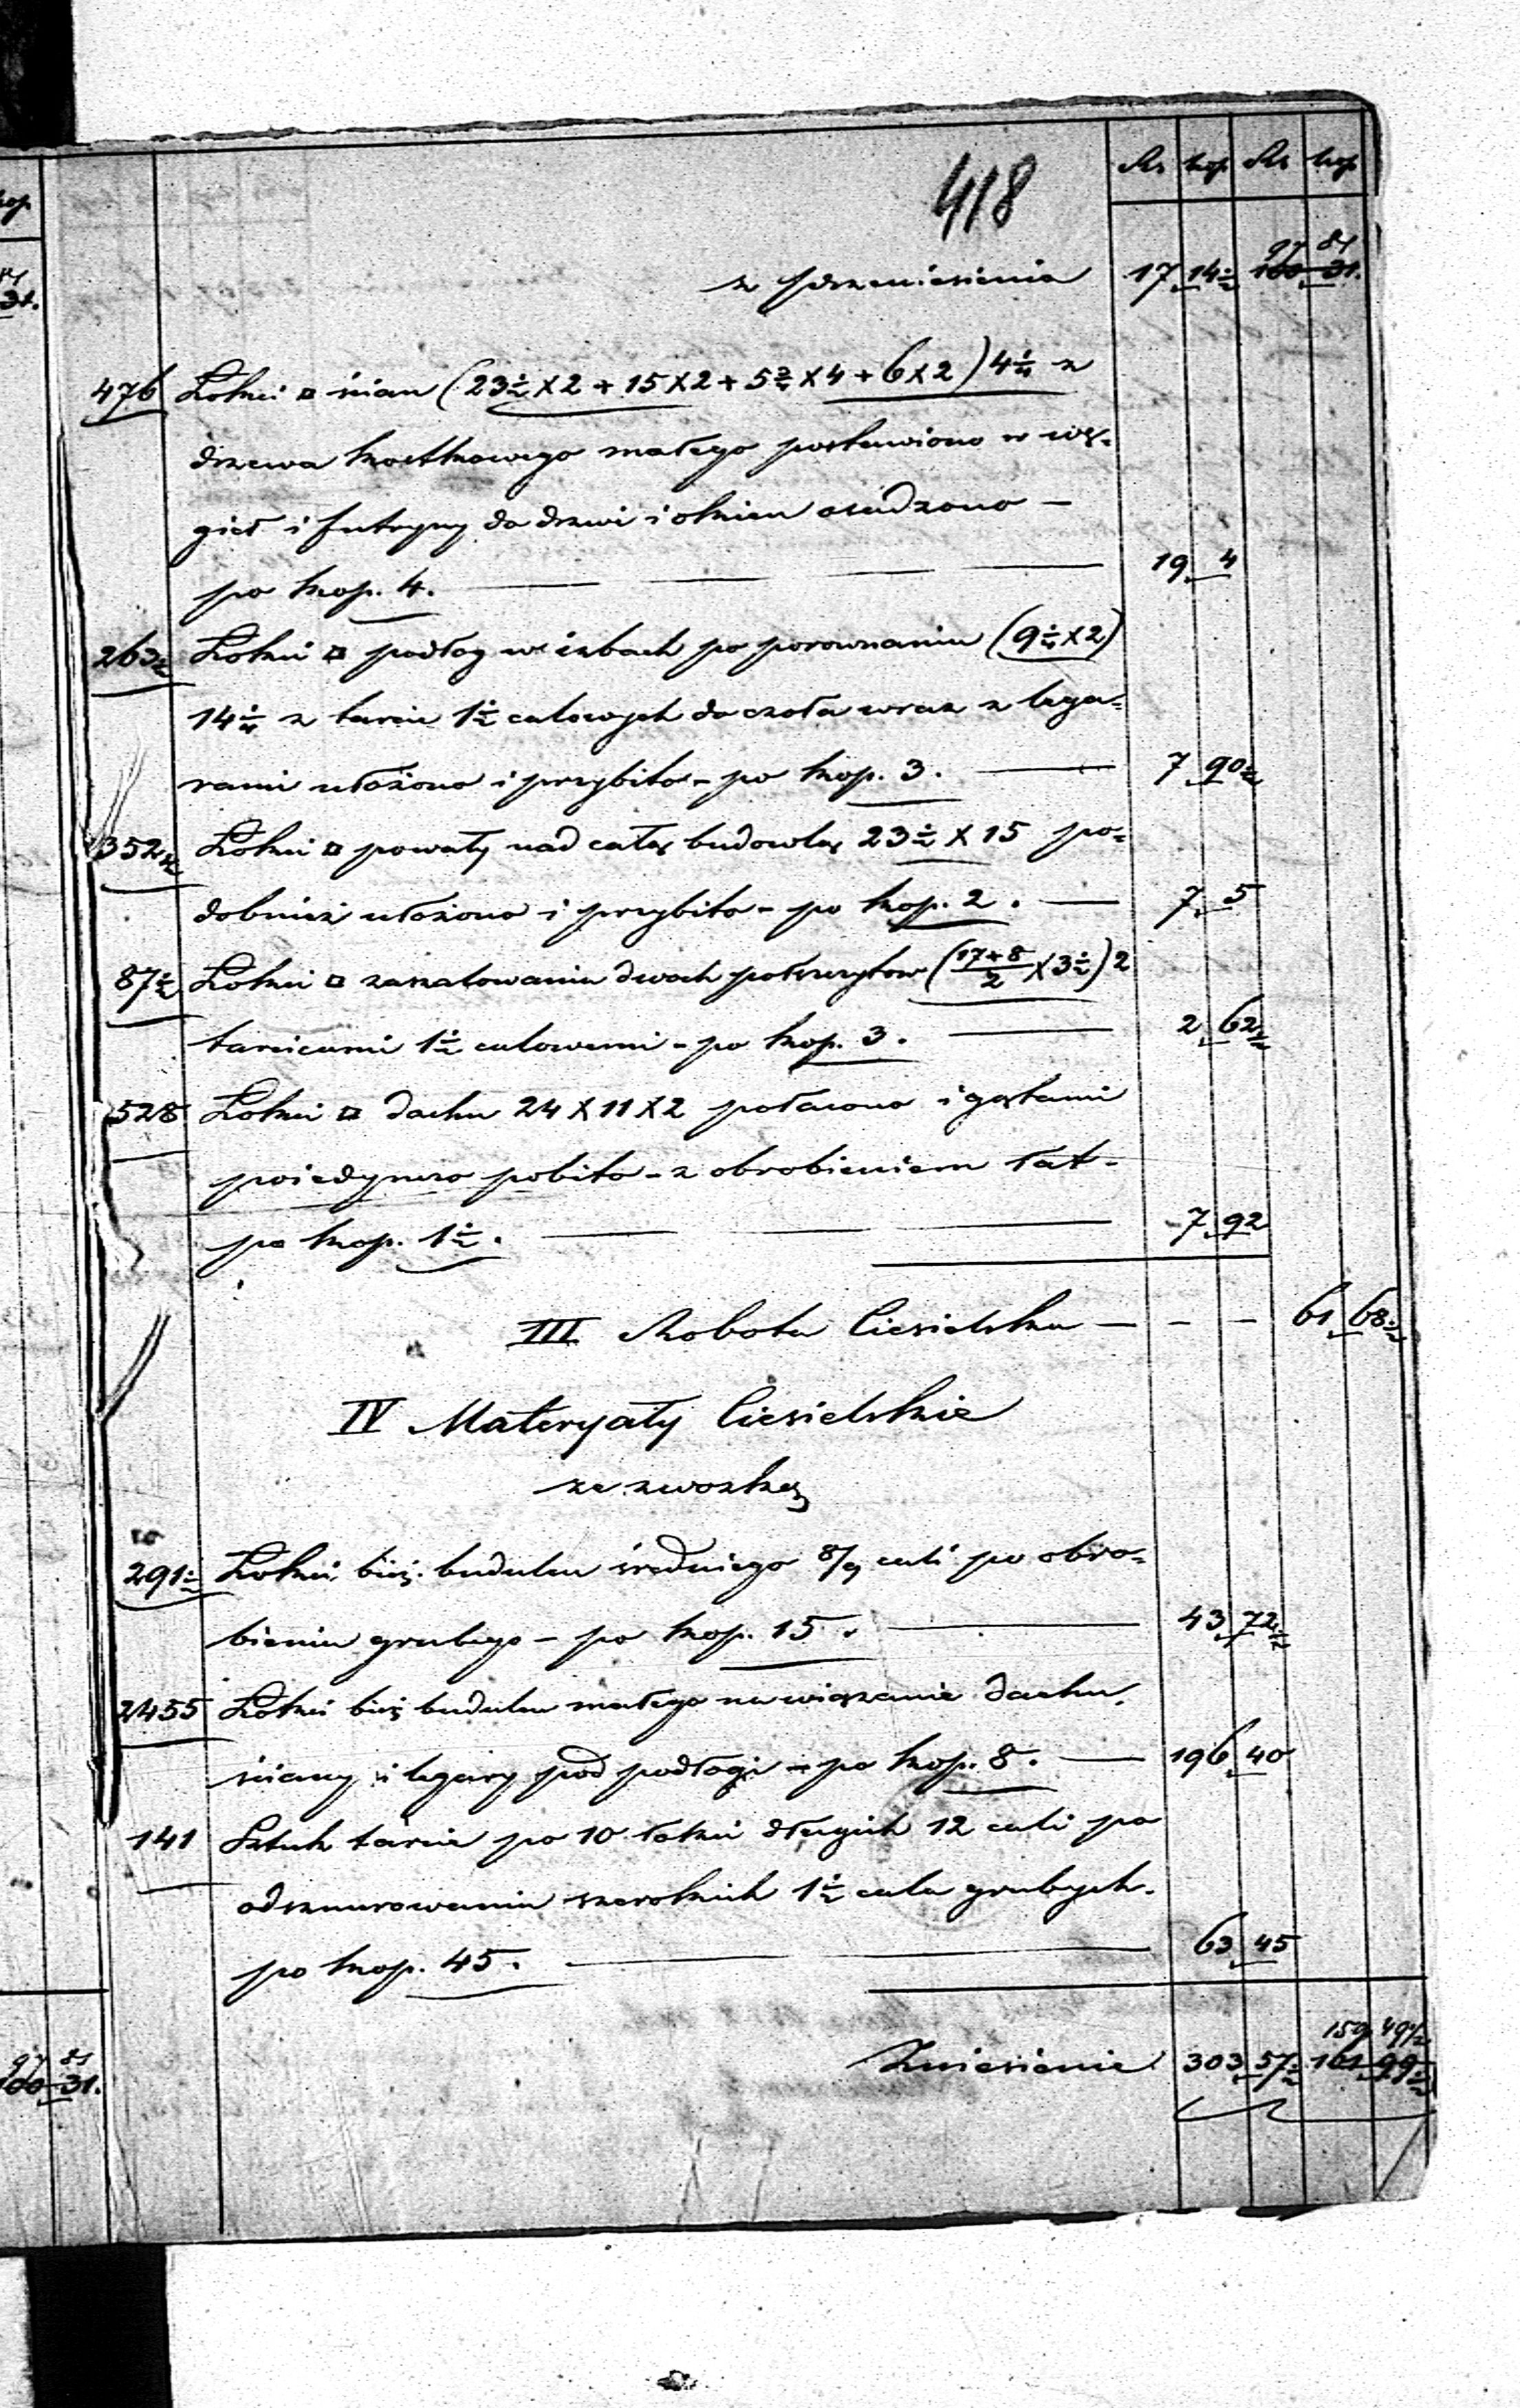 418
Rs kop Rs kop
z przeniesienia 17 14½ 97 81 100 31.
476 Łokci □ ścian (23½ X 2 + 15 X 2 + 5¾ X 4 + 6 X 2) 4¼ z
drzewa kostkowego małego postawiono w wę-
gieł i futryny do drzwi i okien osadzono —
po kop. 4. 19 4
263½ Łokci □ podłog w izbach po porownaniu (9¼ X 2)
14¼ z tarcic 1½ calowych do czoła wraz z lega=
rami ułożono i przybito - po kop. 3. 7 90½
352½ Łokci □ powały nad całą budowlą 23½ X 15 po=
dobnież ułożono i przybito - po kop. 2. 7 5
87½ Łokci □ zaszalowania dwoch połszczytow (17+8/2 X 3½) 2
tarcicami 1½ calowemi - po kop. 3. 2 62½
528 Łokci □ dachu 24 X 11 X 2 połacono i gątami
poiedynczo pobito - z obrobieniem łat -
po kop. 1½. 7 92
III Robota Ciesielska — - — 61 68½
IV Materyały Ciesielskie
ze zwozką
291½ Łokci bież. budulcu średniego 8/9 cali po obro=
bieniu grubego - po kop. 15. 43 72½
2455 Łokci bież budulcu małego na wiązanie dachu,
ściany i legary pod podłogi - po kop. 8. 196 40
141 Sztuk tarcic po 10 łokci długich 12 cali po
odsznurowaniu szerokich 1½ cala grubych.
po kop. 45. 63 45
159 49½
Zniesienie 303 57½ 161 99½
kop
31.
97 81
100 31.